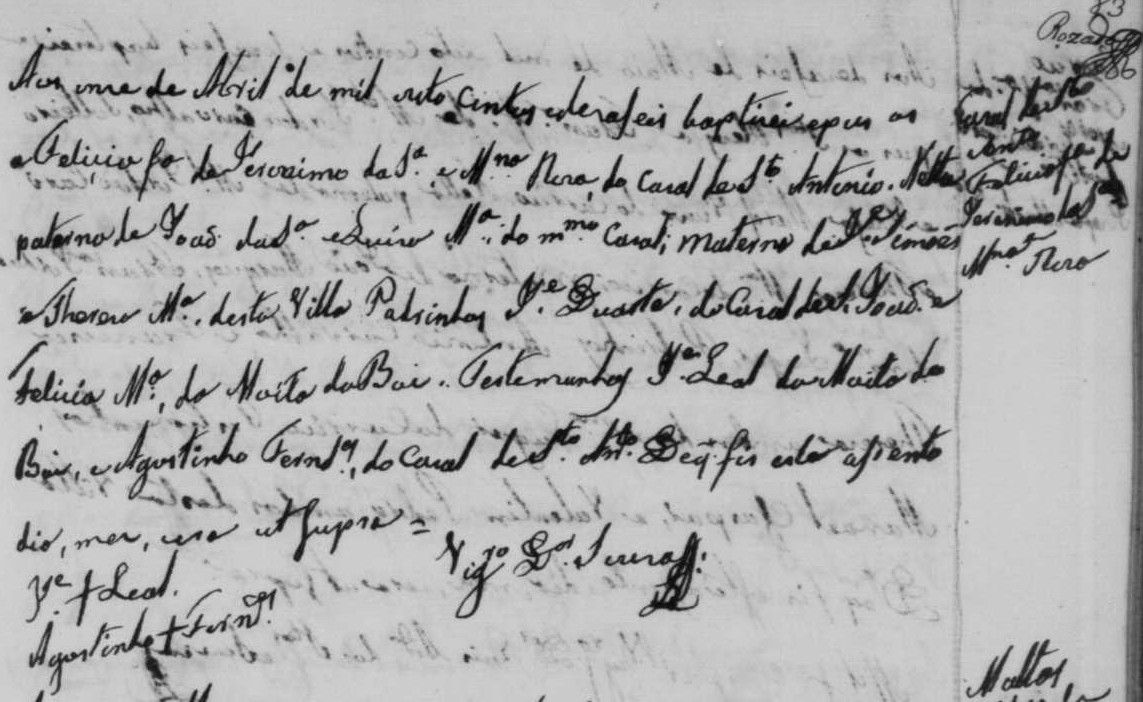 83
Rozado
86
Aos onze de Abril de mil oito centos e deraseis baptizei e pus os
Felicio fo de Jeronimo da Sa. e Mna Roza, do Casal de Sto Antonio. Netto
paterno de Joaõ da Sa. e Luiza Ma. do mmo Casal; materno de Je Simoés
e Thereza Ma. desta Villa Padrinhos Je Duarte, do Casal de S. Joaõ e
Felicia Ma. da Moita do Boi. Testemunhas Je Leal da Moita do
Boi, e Agostinho Fernds, do Casal de Sto. Anto. De q̃ fis este aSento
dia, mes, era ut Supra =
Vigro
Je. † Leal.
Agostinho † Fernds
Casal de Sto
Anto
Felicio fo de
Jeronimo da Sa
Mna Roza
Mattos